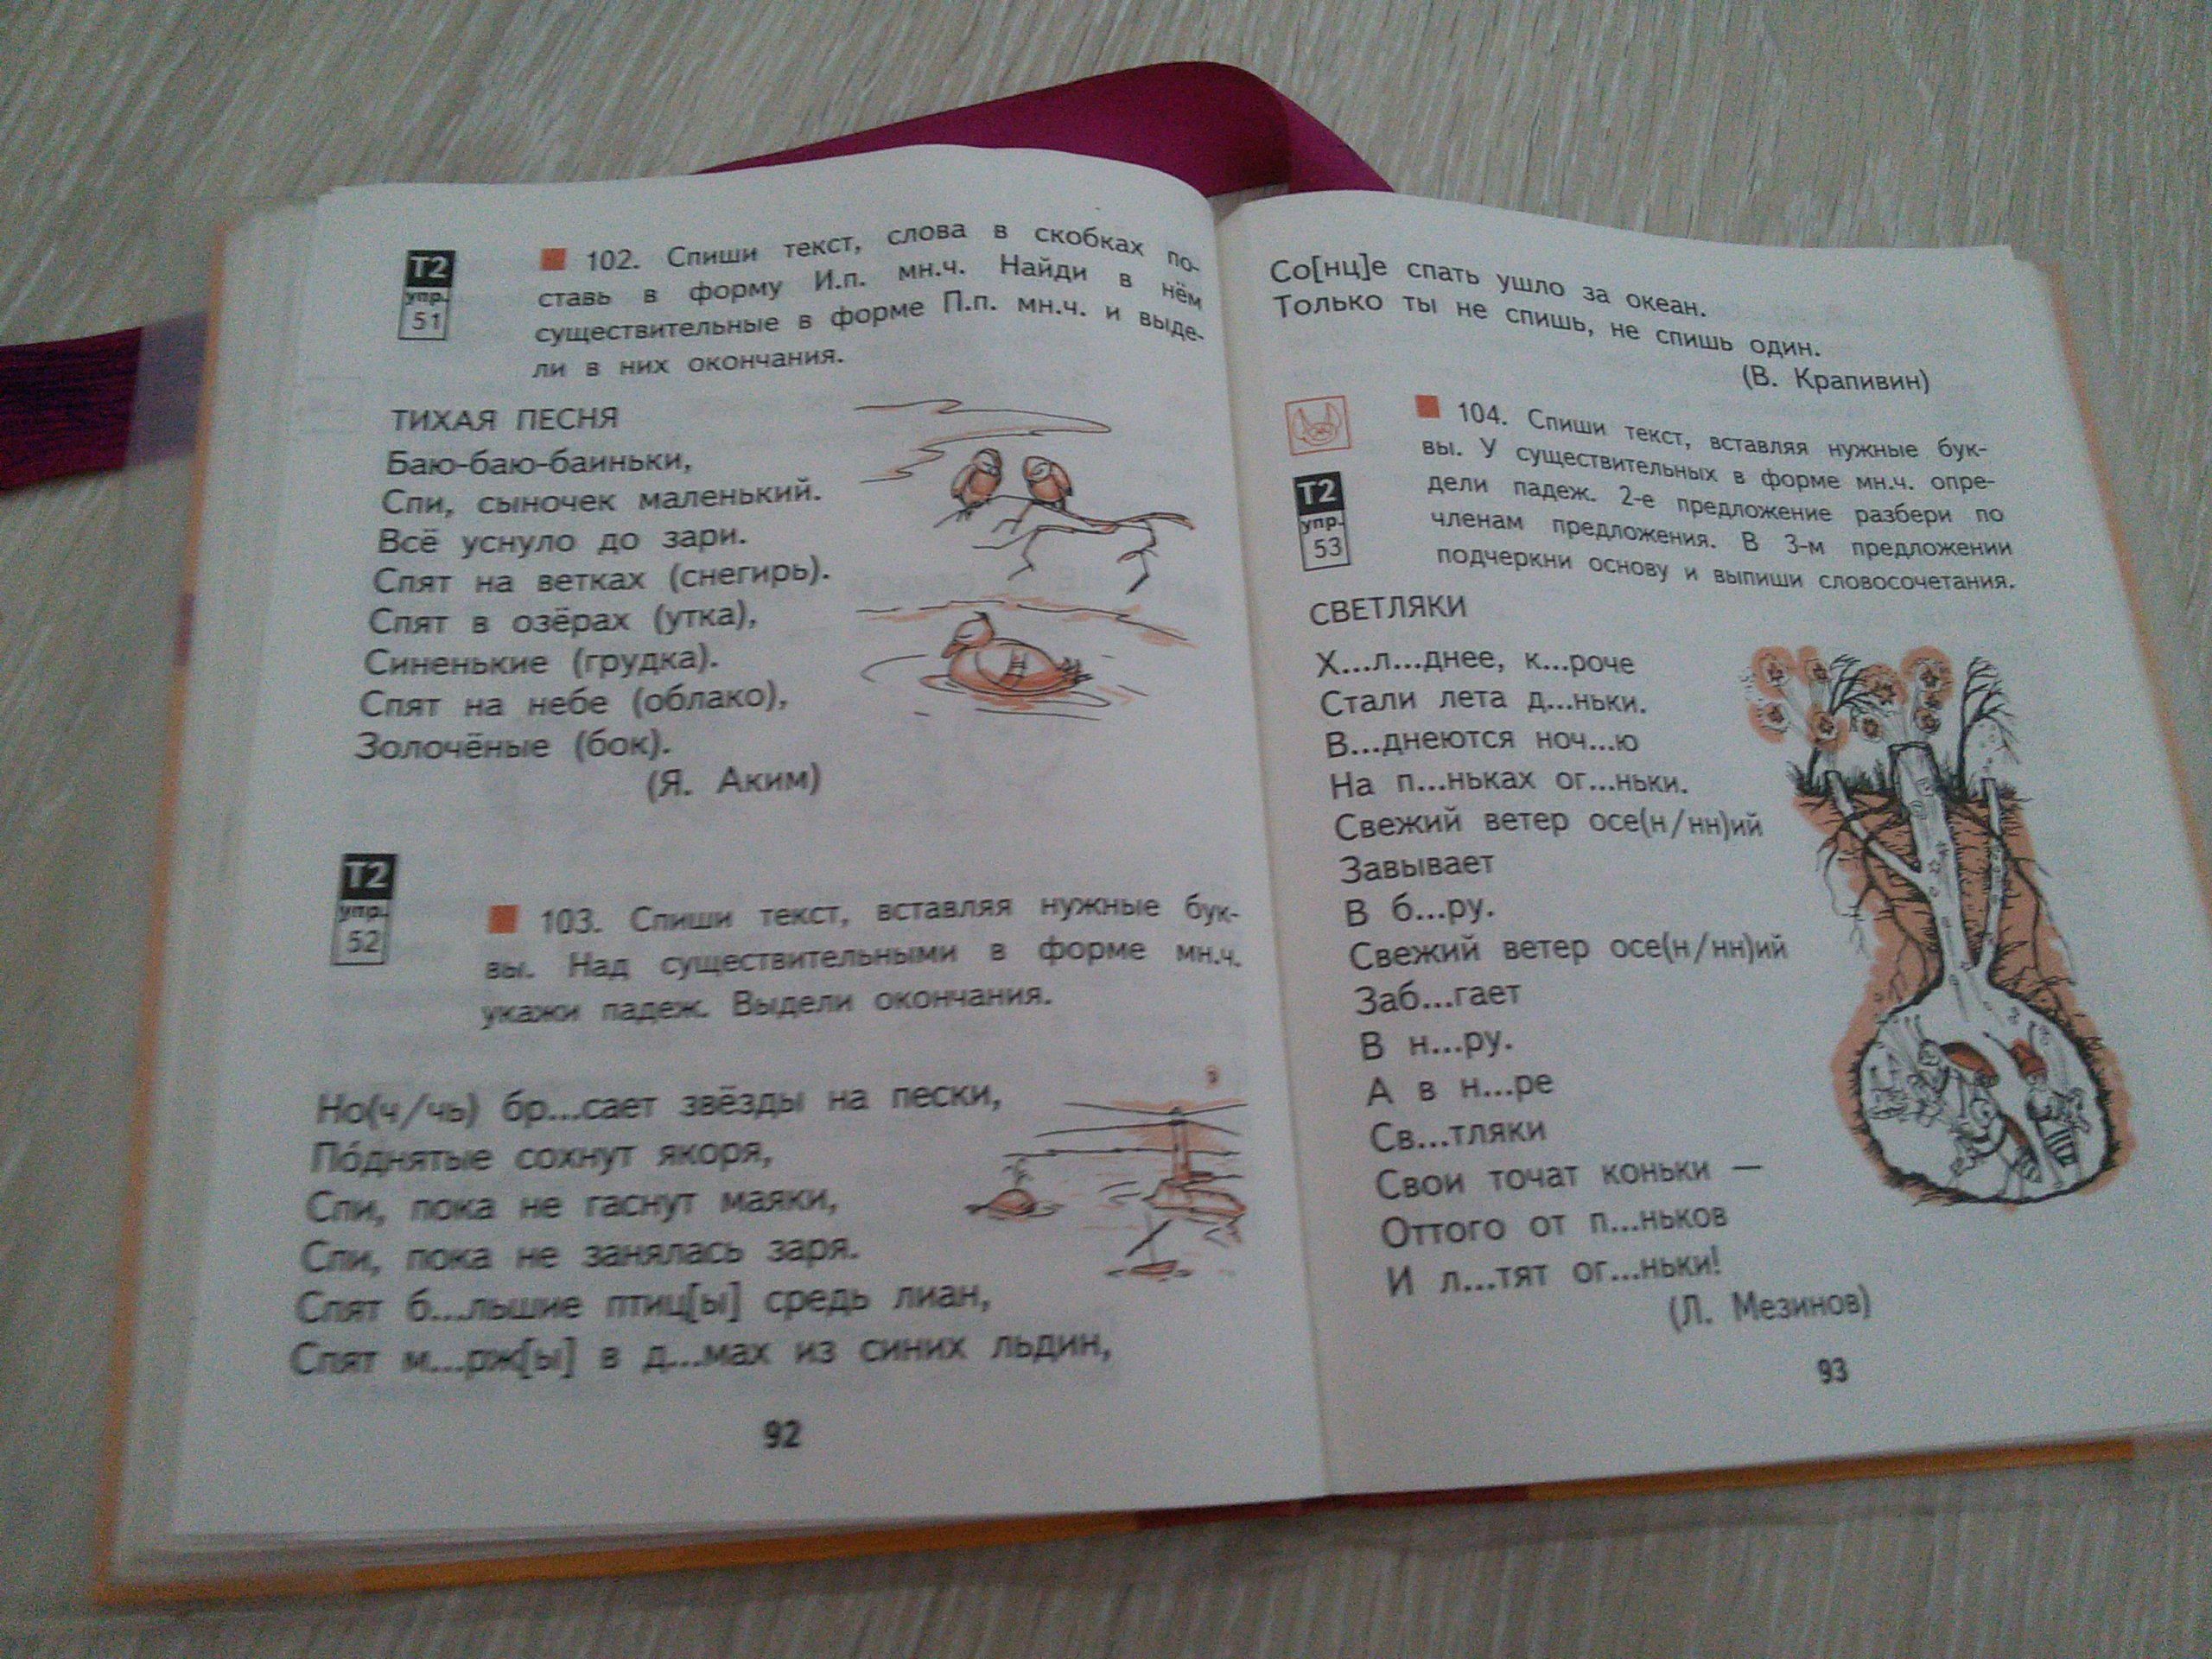 Т2
упр.
51
102. Спиши текст, слова в скобках по-
ставь в форму И.п. мн.ч. Найди в нём
существительные в форме П.п. мн.ч. и выде-
ли в них окончания.
ТИХАЯ ПЕСНЯ
Баю-баю-баиньки,
Спи, сыночек маленький.
Всё уснуло до зари.
Спят на ветках (снегирь).
Спят в озёрах (утка),
Синенькие (грудка).
Спят на небе (облако),
Золочёные (бок).
(Я. Аким)
Т2
упр.
52
103. Спиши текст, вставляя нужные бук-
вы. Над существительными в форме мн.ч.
укажи падеж. Выдели окончания.
Но(ч/чь) бр...сает звёзды на пески,
По́днятые сохнут якоря,
Спи, пока не гаснут маяки,
Спи, пока не занялась заря.
Спят б...льшие птиц[ы] средь лиан,
Спят м...рж[ы] в д...мах из синих льдин,
92
Со[нц]е спать ушло за океан.
Только ты не спишь, не спишь один.
(В. Крапивин)
Т2
упр.
53
104. Спиши текст, вставляя нужные бук-
вы. У существительных в форме мн.ч. опре-
дели падеж. 2-е предложение разбери по
членам предложения. В 3-м предложении
подчеркни основу и выпиши словосочетания.
СВЕТЛЯКИ
Х...л...днее, к...роче
Стали лета д...ньки.
В...днеются ноч...ю
На п...ньках ог...ньки.
Свежий ветер осе(н/нн)ий
Завывает
В б...ру.
Свежий ветер осе(н/нн)ий
Заб...гает
В н...ру.
А в н...ре
Св...тляки
Свои точат коньки —
Оттого от п...ньков
И л...тят ог...ньки!
(Л. Мезинов)
93